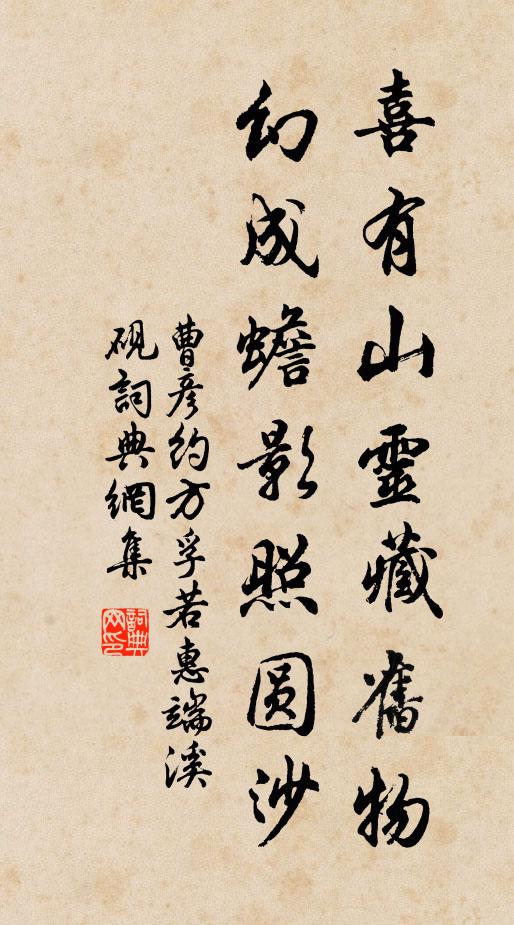 喜有山靈藏舊物
幻成蟾影照圓沙
曹彦約方孚若惠端溪
硯詞典網集
詞典網印